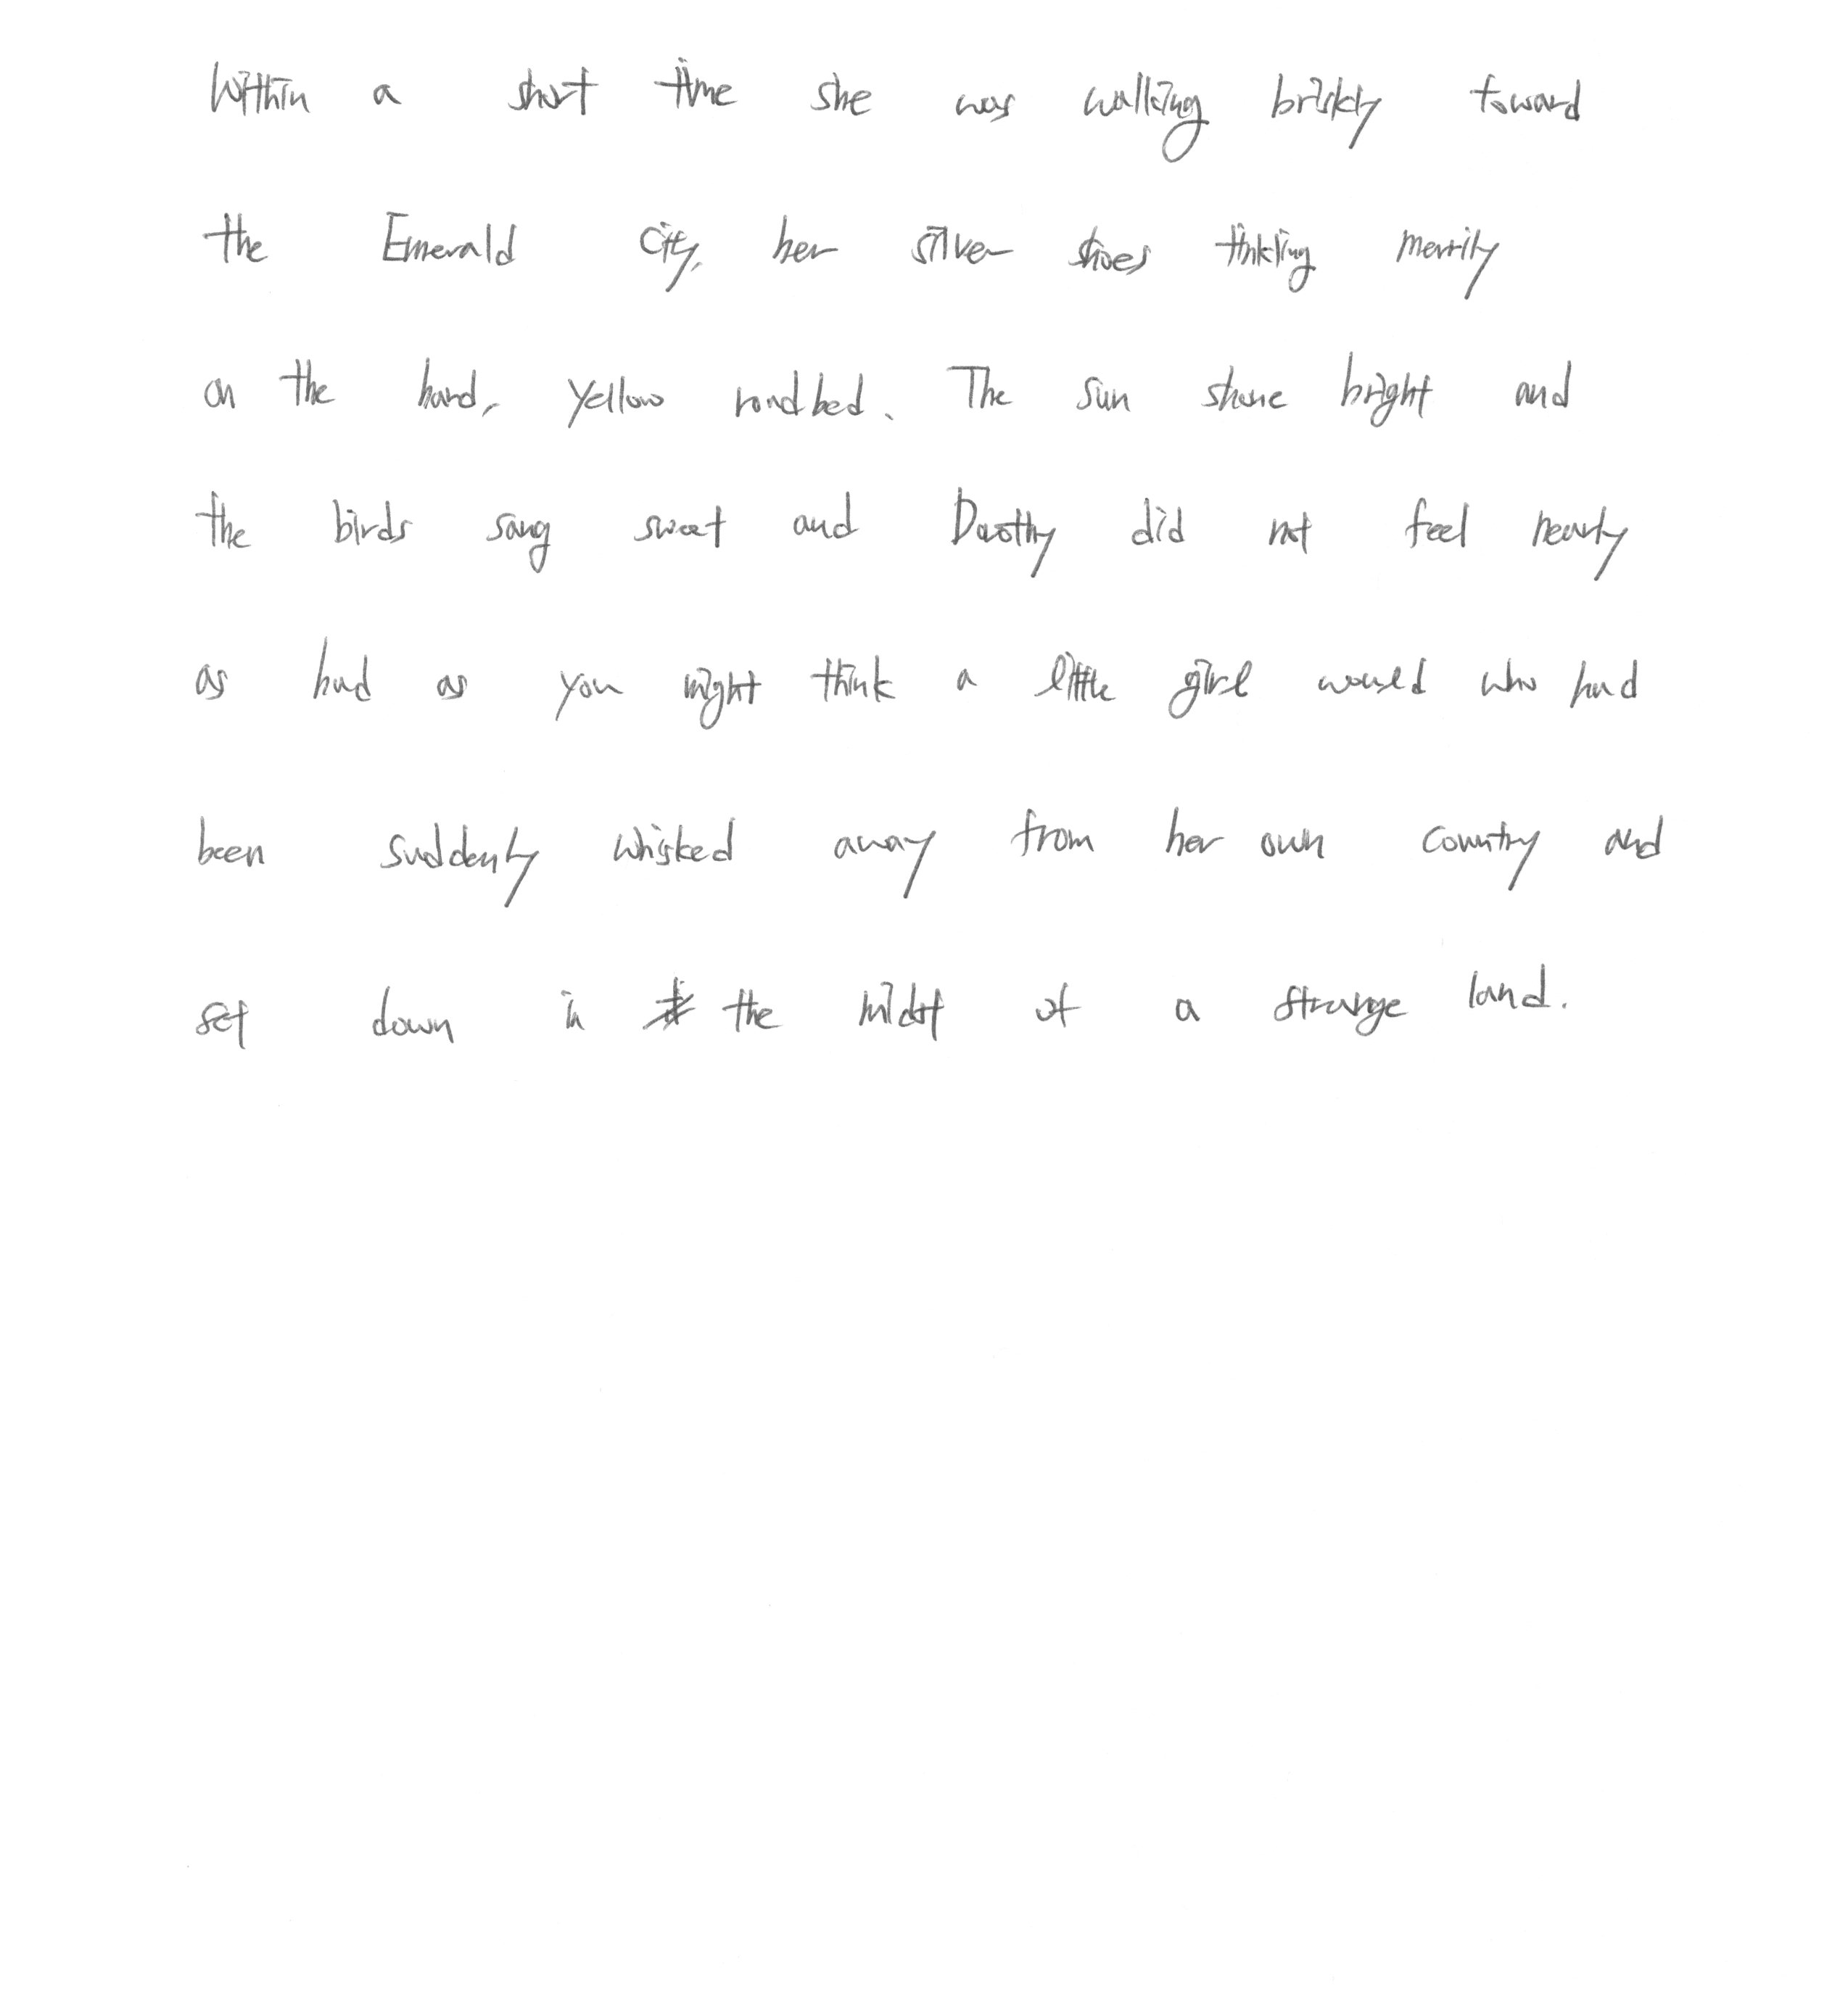 Within a short time she was walking briskly toward
the Emerald City, her silver shoes tinkling merrily
on the hard, yellow roadbed. The sun shone bright and
the birds sang sweet and Dorothy did not feel nearly
as bad as you might think a little girl would who had
been suddenly whisked away from her own country and
set down in the midst of a strange land.